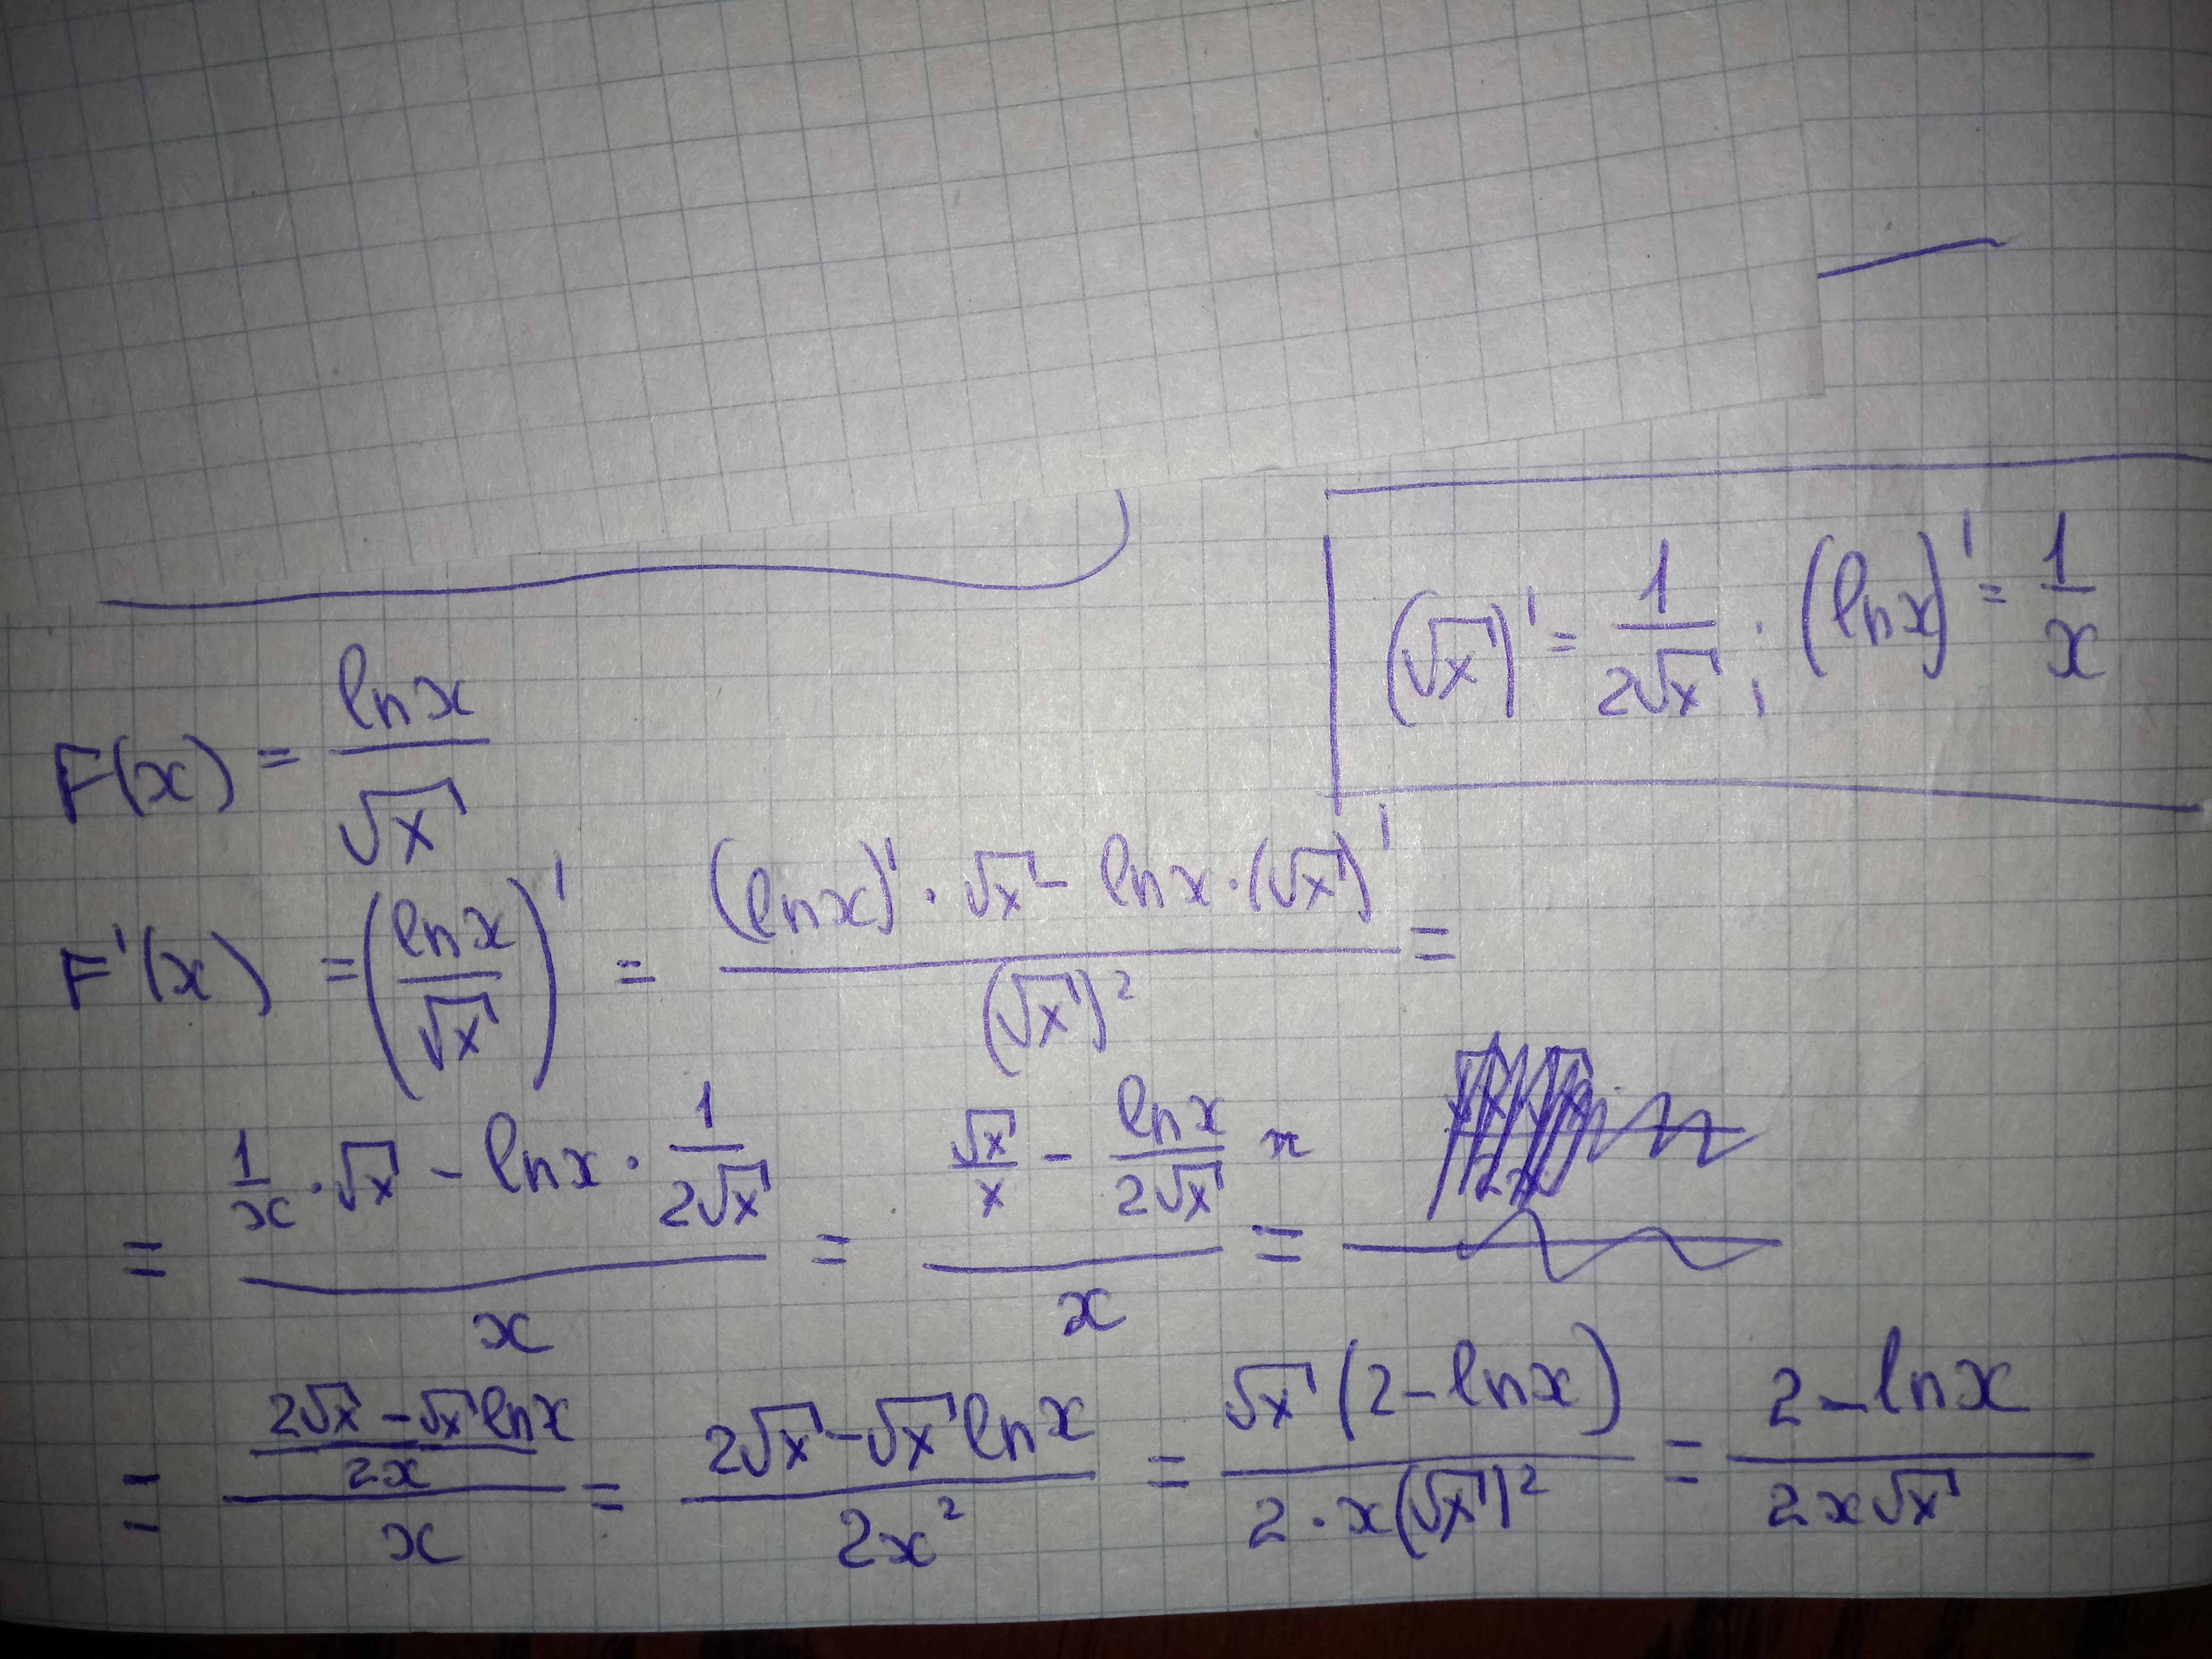 (√x)' = 1/(2√x) ; (ln x)' = 1/x
F(x) = ln x/√x
F'(x) = (ln x/√x)' = ((ln x)' · √x - ln x · (√x)')/(√x)² =
= (1/x · √x - ln x · 1/(2√x))/x = (√x/x - ln x/(2√x) x)/x =
= ((2√x - √x ln x)/(2x))/x = (2√x - √x ln x)/(2x²) = (√x (2 - ln x))/(2 · x(√x)²) = (2 - ln x)/(2x√x)